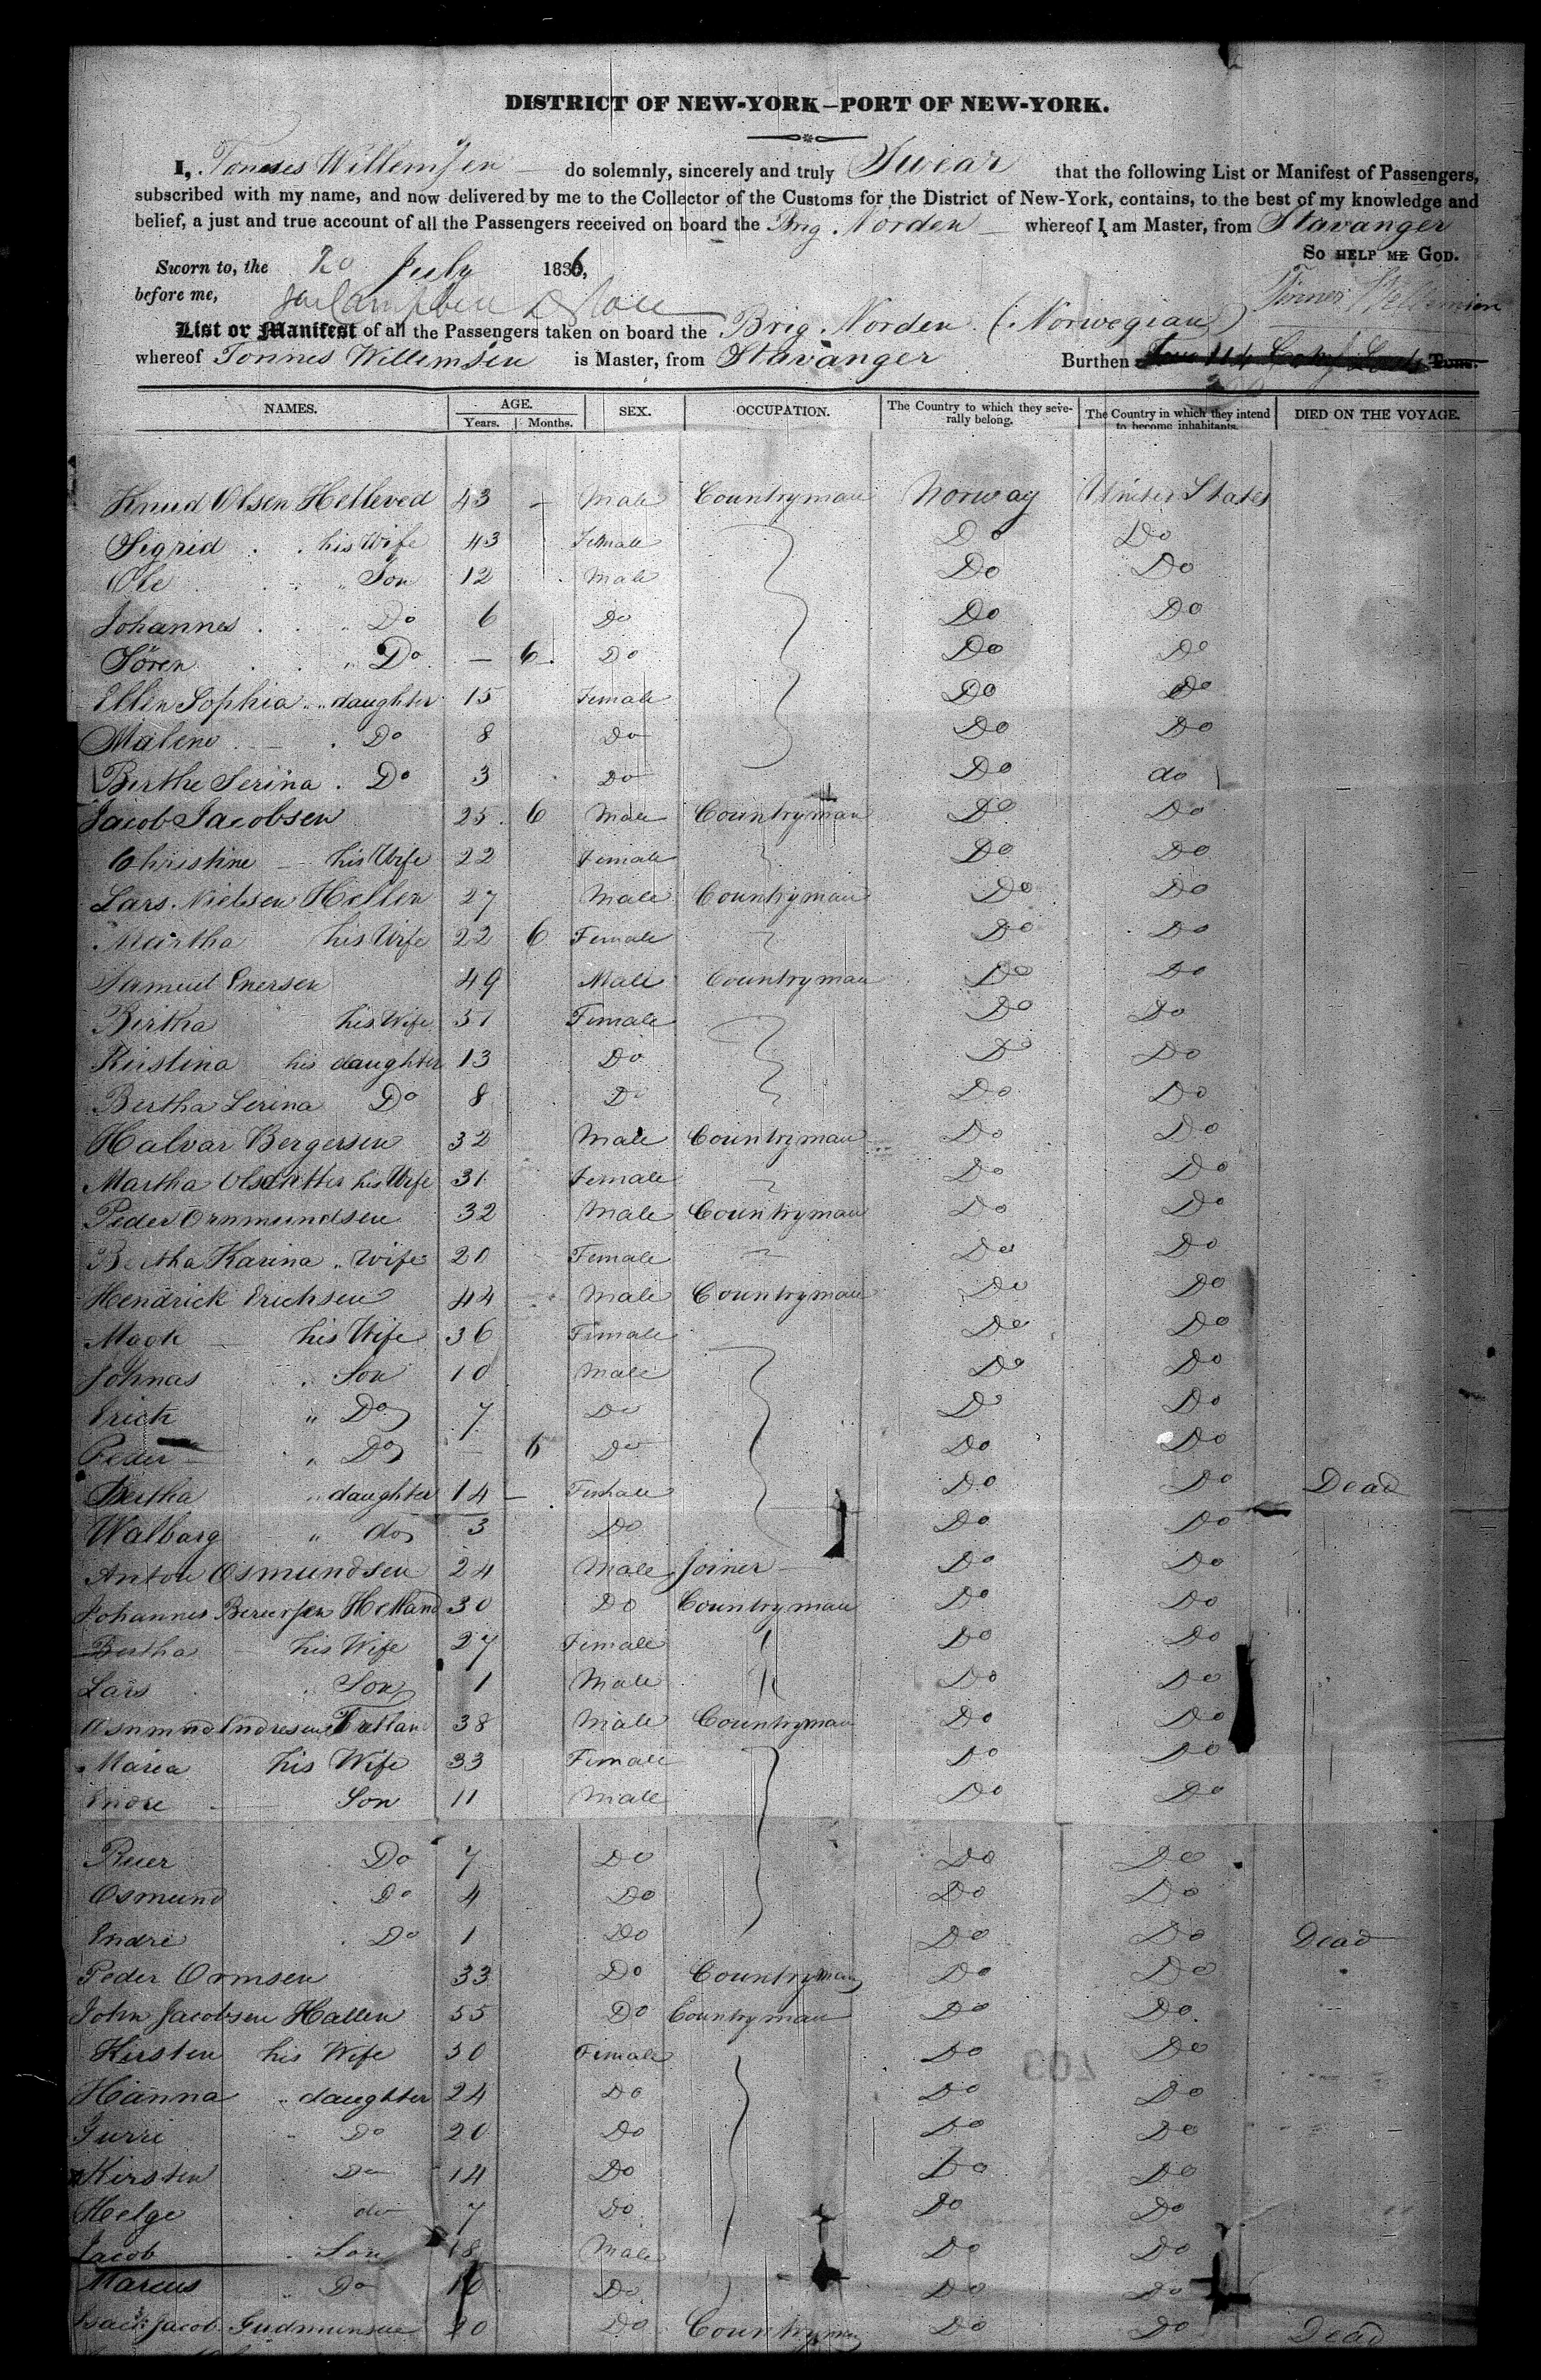 DISTRICT OF NEW-YORK—PORT OF NEW-YORK.
I, Tonnes Willemsen do solemnly, sincerely and truly Swear that the following List or Manifest of Passengers,
subscribed with my name, and now delivered by me to the Collector of the Customs for the District of New-York, contains, to the best of my knowledge and
belief, a just and true account of all the Passengers received on board the Brig Norden whereof I am Master, from Stavanger
So HELP ME GOD.
Sworn to, the 20 July 1836,
before me,
Tönnes Willemsen
List or Manifest of all the Passengers taken on board the Brig Norden (Norwegian)
whereof Tonnes Willemsen is Master, from Stavanger Burthen Tons.
NAMES. AGE. SEX. OCCUPATION. The Country to which they severally belong. The Country in which they intend to become inhabitants. DIED ON THE VOYAGE.
Years. Months.
Knud Olsen Hetleved 43 — Male Countryman Norway United States
Sigrid his Wife 43 Female Do Do
Ole " Son 12 Male Do Do
Johannes " Do 6 Do Do Do
Sören " Do — 6 Do Do Do
Ellen Sophia " daughter 15 Female Do Do
Malene Do 8 Do Do Do
Birthe Serina Do 3 Do Do do
Jacob Jacobsen 25 6 Male Countryman Do Do
Christine his Wife 22 Female Do Do
Lars Nielsen Hellen 27 Male Countryman Do Do
Martha his Wife 22 6 Female Do Do
Samuel Enersen 49 Male Countryman Do Do
Bertha his Wife 51 Female Do Do
Kirstina his daughter 13 Do Do Do
Bertha Serina Do 8 Do Do Do
Halvar Bergersen 32 Male Countryman Do Do
Martha his Wife 31 Female Do Do
Peder Ornmundsen 32 Male Countryman Do Do
Bertha Karina " Wife 20 Female Do Do
Hendrick Erichsen 44 Male Countryman Do Do
his Wife 36 Female Do Do
Johnas Son 10 Male Do Do
Erich " Do 7 Do Do Do
Peder " Do — 6 Do Do Do
Bertha " daughter 14 — Female Do Do Dead
Walbarg " do 3 Do Do Do
Anton Osmundsen 24 Male Joiner Do Do
Johannes Helland 30 Do Countryman Do Do
Bertha his Wife 27 Female Do Do
Lars " Son 1 Male Do Do
Osnmnd Endresen 38 Male Countryman Do Do
Maria his Wife 33 Female Do Do
Endre Son 11 Male Do Do
Do 7 Do Do Do
Osmund Do 4 Do Do Do
Endre Do 1 Do Do Do Dead
Peder Ormsen 33 Do Countryman Do Do
John Jacobsen Hallen 55 Do Countryman Do Do
Kirsten his Wife 50 Female Do Do
Hanna " daughter 24 Do Do Do
Gurri " Do 20 Do Do Do
Kirsten Do 14 Do Do Do
Helge do 7 Do Do Do
Jacob Son 18 Male Do Do
Marcus " Do 10 Do Do Do
Jacob Gudmunsen 20 Do Countryman Do Do Dead